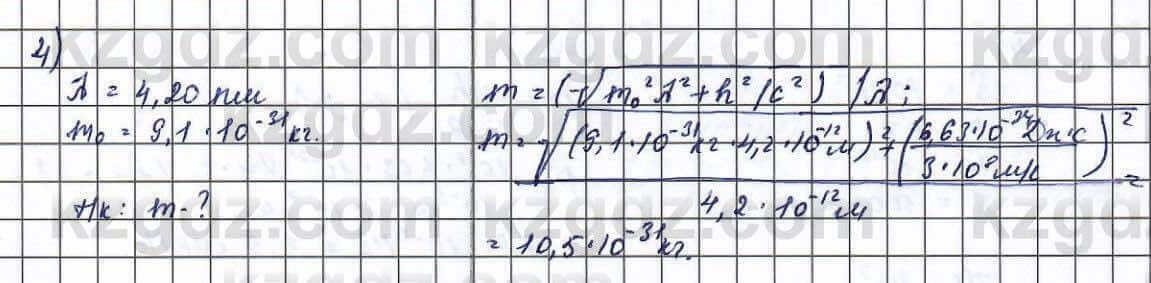 4)
λ = 4,20 пм
m₀ = 9,1 · 10⁻³¹ кг.
Нк: m - ?
m = (√m₀²λ² + h²/c²) / λ;
m = √(9,1 · 10⁻³¹ кг · 4,2 · 10⁻¹² м)² + (6,63 · 10⁻³⁴ Дж · с / 3 · 10⁸ м/с)² =
4,2 · 10⁻¹² м
= 10,5 · 10⁻³¹ кг.
kzgdz.com kzgdz.com kzgdz.com